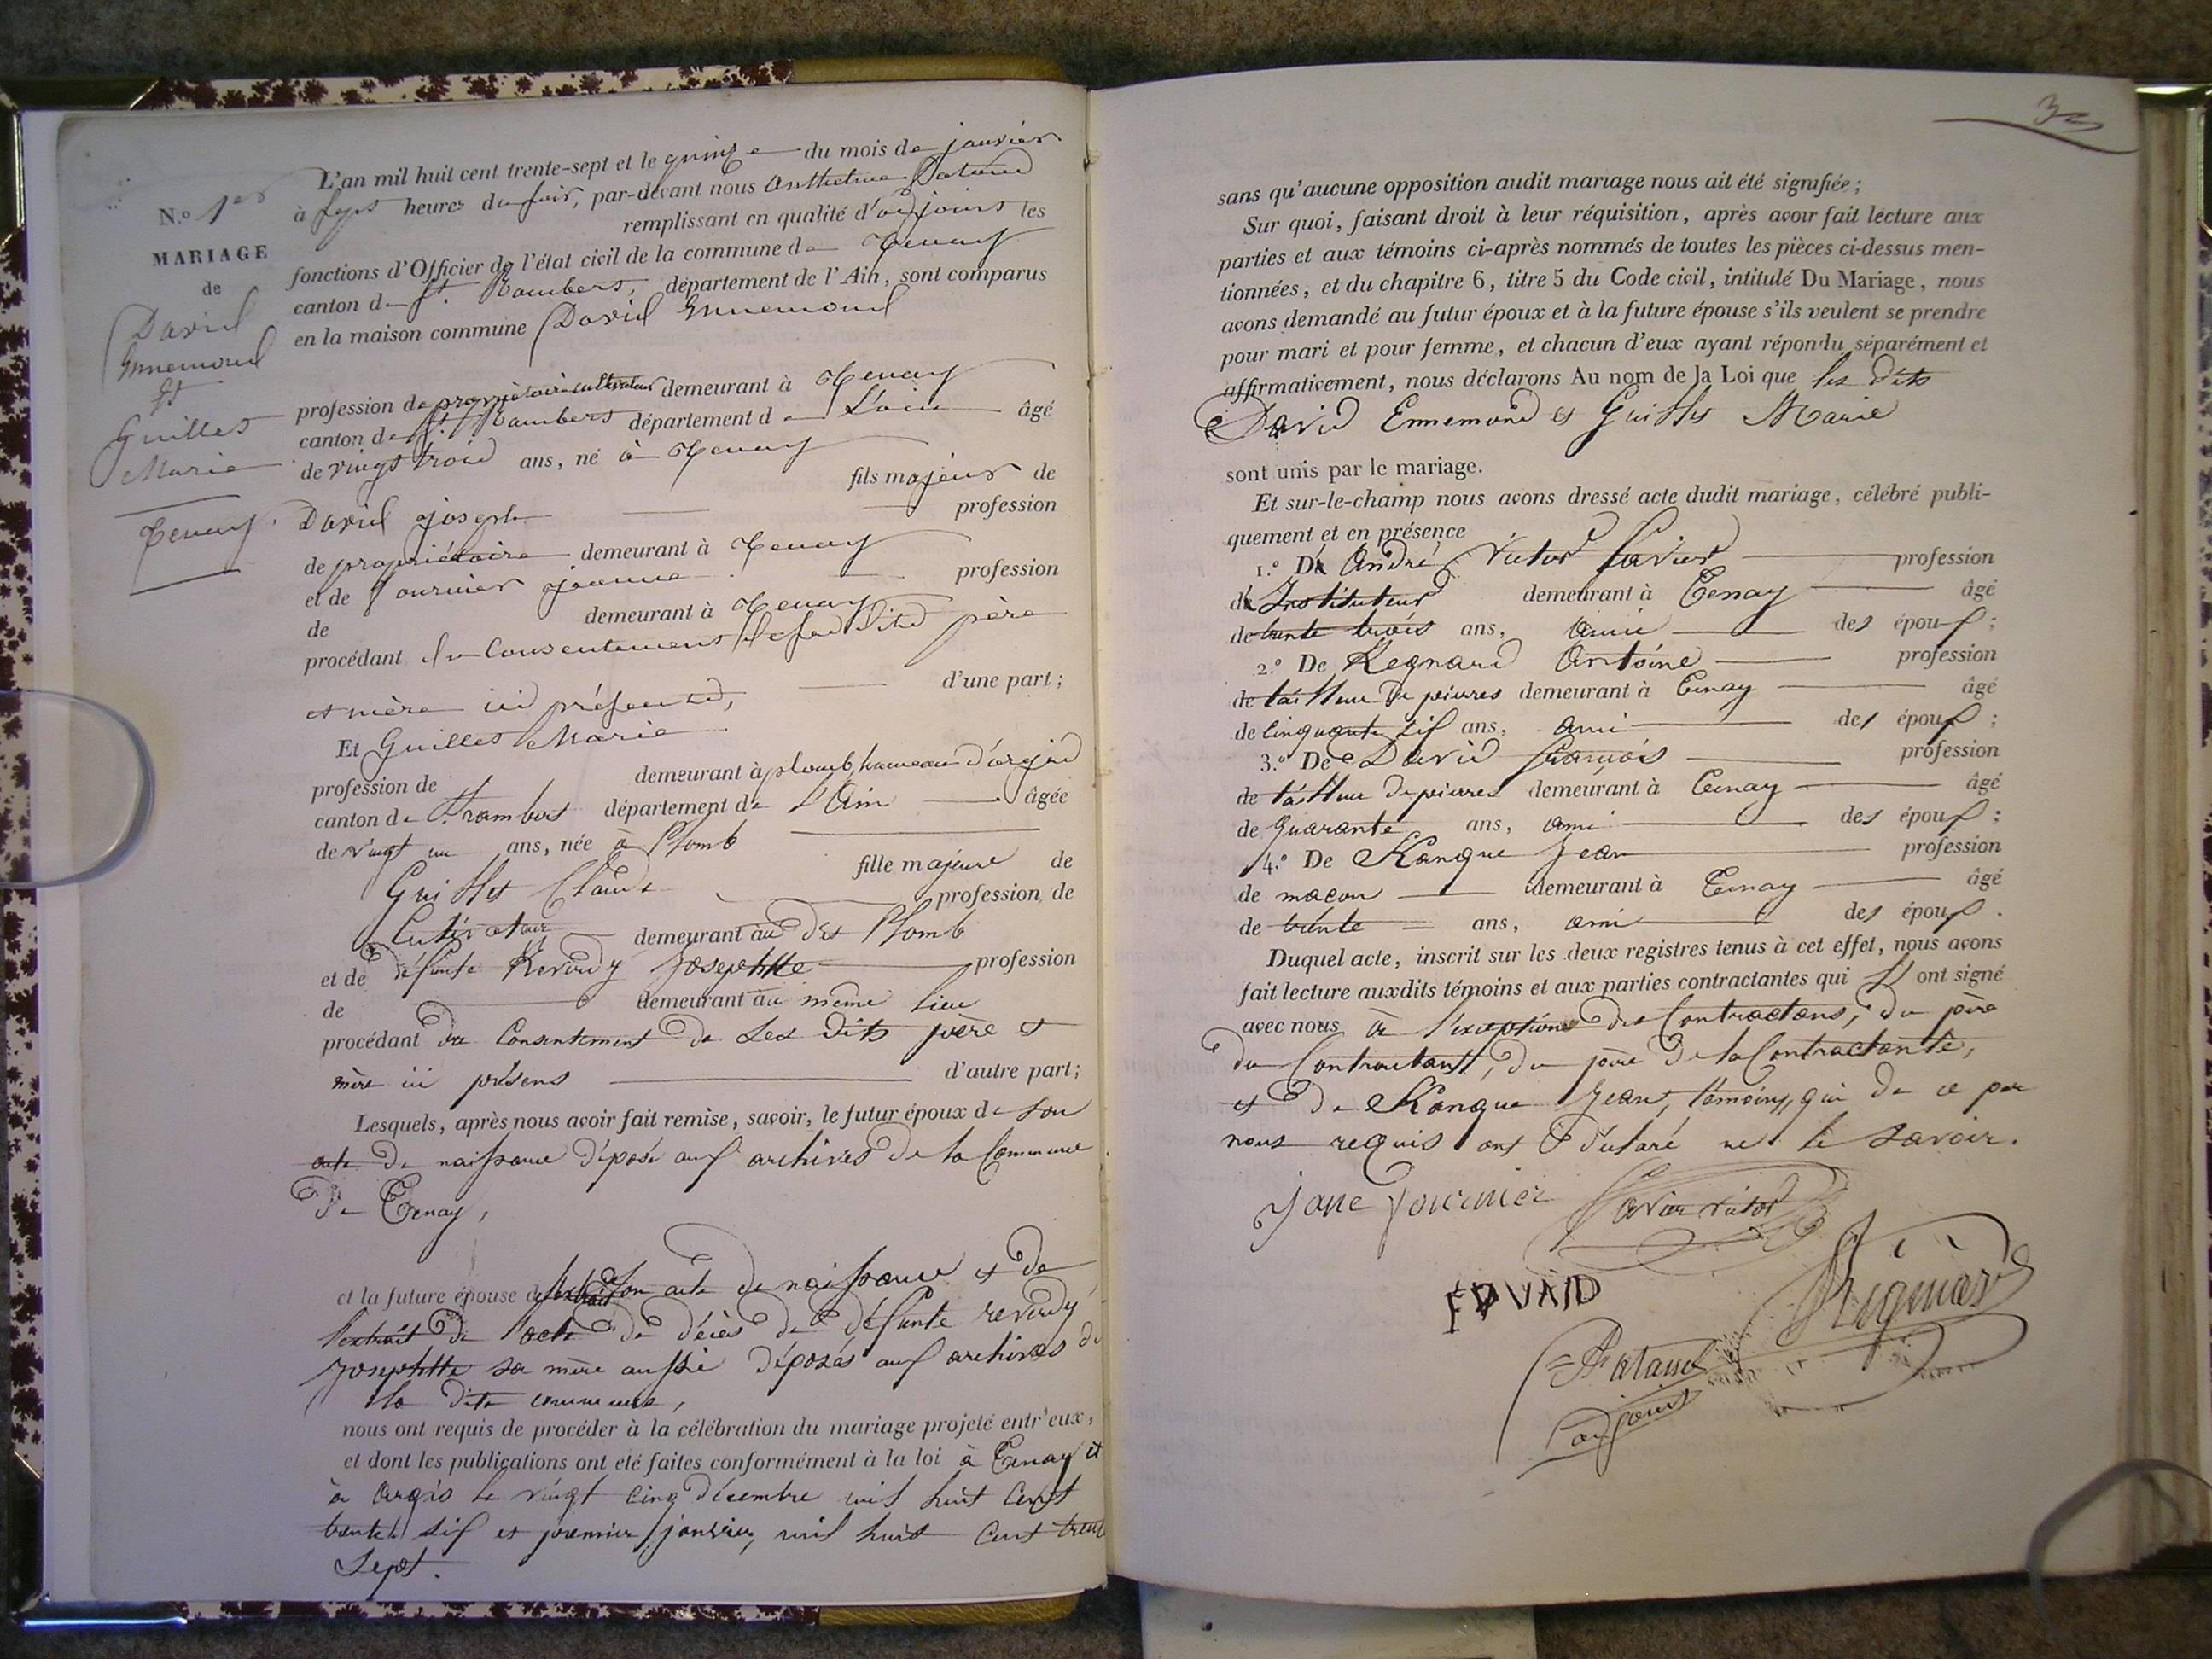 N.º 1er
MARIAGE
de
David
Ennemond
et
Guillet
Marie
Tenay.
L'an mil huit cent trente-sept et le quinze du mois de janvier
à sept heures du soir, par-devant nous Anthelme Pataud
remplissant en qualité d'adjoint les
fonctions d'Officier de l'état civil de la commune de Tenay
canton de St. Rambert, département de l'Ain, sont comparus
en la maison commune David Ennemond
profession de propriétaire cultivateur demeurant à Tenay
canton de St. Rambert département de L'ain âgé
de vingt trois ans, né à Tenay
fils majeur de
David joseph profession
de propriétaire demeurant à Tenay
et de fournier jeanne profession
de demeurant à Tenay
procédant du Consentement de ses dits père
et mère ici présents, d'une part;
Et Guillet Marie
profession de demeurant à plomb, hameau d'argis
canton de St. rambert département de l'Ain âgée
de vingt un ans, née à Plomb
fille majeure de
Guillet Claude profession de
Cultivateur demeurant au dit Plomb
et de défunte Reverdy Josephtte profession
de demeurant au même lieu
procédant du Consentement de Ses dits père et
mère ici présens d'autre part;
Lesquels, après nous avoir fait remise, savoir, le futur époux de son
acte de naissance déposé aux archives de la Commune
De Tenay,
et la future épouse de l'extrait de son acte de naissance et de
l'extrait de l'acte de décès de défunte reverdy
Josephtte sa mère aussi déposés aux archives de
la dite commune,
nous ont requis de procéder à la célébration du mariage projeté entr'eux,
et dont les publications ont été faites conformément à la loi à Tenay et
à Argis le vingt cinq décembre mil huit cent
trente six et premier janvier, mil huit cent trente
Sept.
3
sans qu'aucune opposition audit mariage nous ait été signifiée;
Sur quoi, faisant droit à leur réquisition, après avoir fait lecture aux
parties et aux témoins ci-après nommés de toutes les pièces ci-dessus men-
tionnées, et du chapitre 6, titre 5 du Code civil, intitulé Du Mariage, nous
avons demandé au futur époux et à la future épouse s'ils veulent se prendre
pour mari et pour femme, et chacun d'eux ayant répondu séparément et
affirmativement, nous déclarons Au nom de la Loi que les dits
David Ennemond et Guillet Marie
sont unis par le mariage.
Et sur-le-champ nous avons dressé acte dudit mariage, célébré publi-
quement et en présence
1.º D' André Victor Savier profession
d'Instituteur demeurant à Tenay âgé
de trente trois ans, ami des époux;
2.º De Regnard Antoine profession
de tailleur de peirres demeurant à Tenay âgé
de cinquante six ans, ami des époux;
3.º De David francois profession
de tailleur de peirres demeurant à Tenay âgé
de quarante ans, ami des époux;
4.º De Kanque Jean profession
de macon demeurant à Tenay âgé
de trente ans, ami des époux.
Duquel acte, inscrit sur les deux registres tenus à cet effet, nous avons
fait lecture auxdits témoins et aux parties contractantes qui l'ont signé
avec nous à l'exception des Contractans, du père
du Contractant, du père de la Contractante,
et de Kanque Jean, témoins, qui de ce par
nous requis ont déclaré ne le savoir.
jane fournier
Savier victor
Regniard
Pataud
adjoint